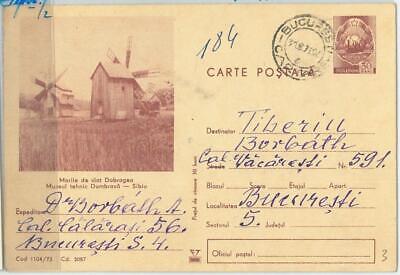 184
BUCUREȘTI
CARTE POȘTALĂ
50
Morile de vînt Dobrogea
Muzeul tehnic Dumbrava — Sibiu
Expeditor Dr Borbáth A.
Cal. Călărași 56.
București S. 4.
Cod 1104/73 Cd. 3087
Destinatar Tiberiu
Borbáth
Cal. Văcărești Nr. 591.
Strada
Blocul Scara Etajul Apart.
Localitatea București
Sectorul 5. Județul
Oficiul poștal:
3